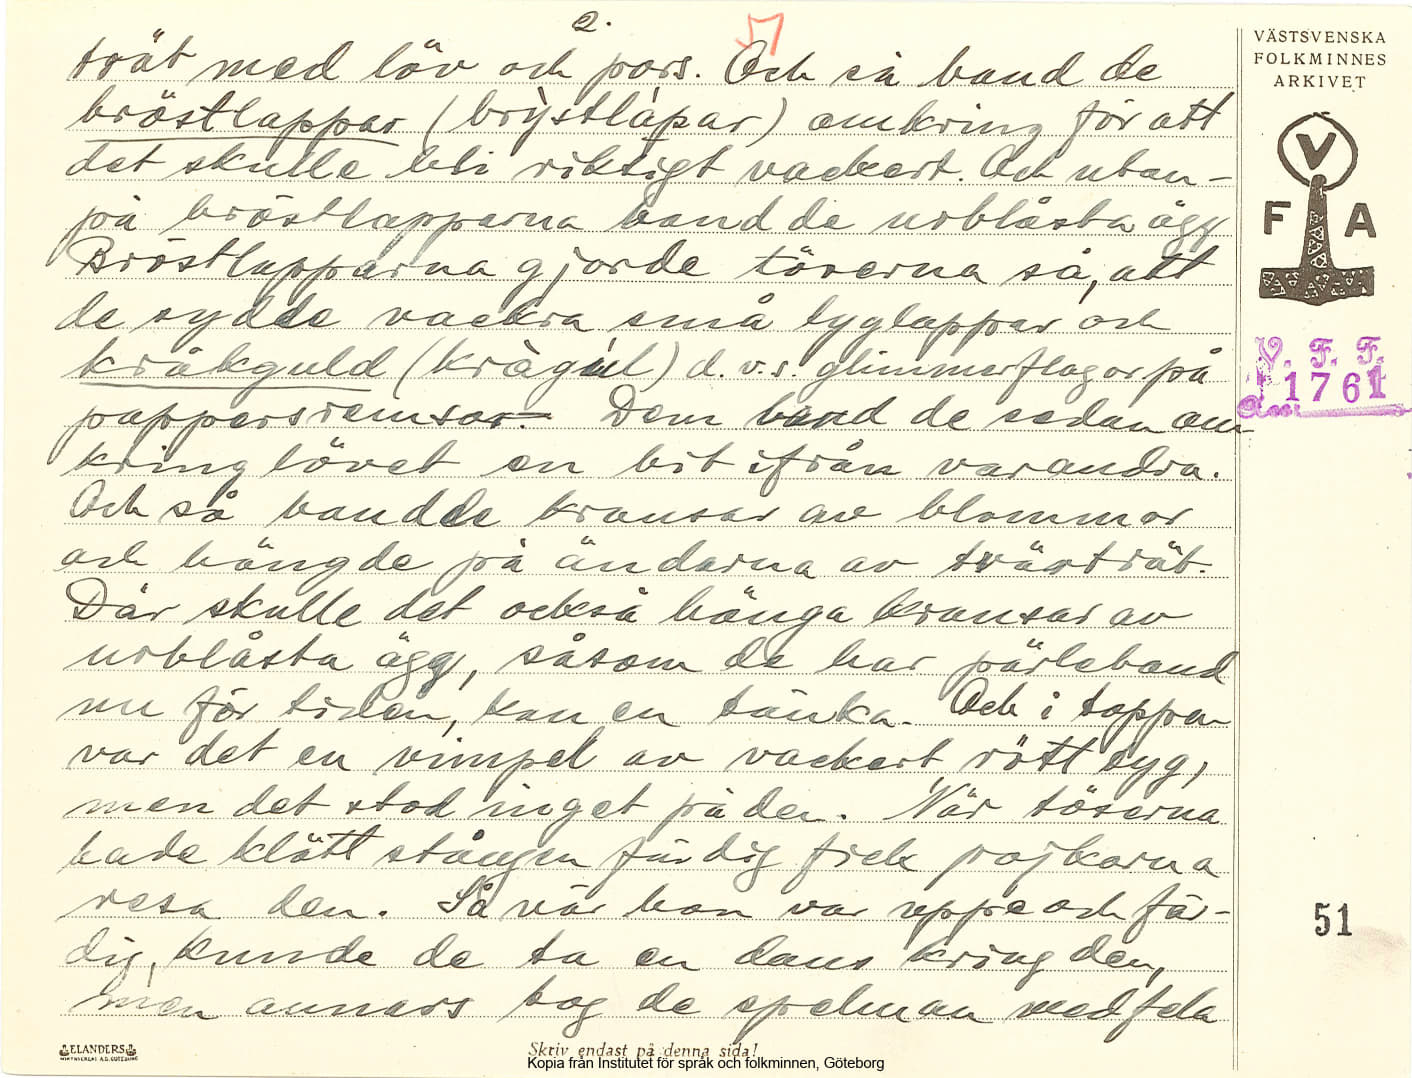 2.
51
trät med löv och pors. Och så band de
bröstlappar (brýstlápar) omkring för att
det skulle bli riktigt vackert. Och utan-
på bröstlapparna band de urblåsta ägg
Bröstlapparna gjorde töserna så, att
de sydde vackra små tyglappar och
kråkguld (kràgúl) d.v.s. glimmerflagor på
pappersremsor. Dem band de sedan om-
kring lövet en bit ifrån varandra.
Och så band de kransar av blommor
och hängde på ändarna av tvärträt.
Där skulle det också hänga kransar av
urblåsta ägg, såsom de har pärleband
nu för tiden, kan en tänka. Och i toppen
var det en vimpel av vackert rött tyg,
men det stod inget på den. När töserna
hade klätt stången färdig fick pojkarna
resa den. Så när han var uppe och fär-
dig, kunde de ta en dans kring den,
men annars tog de spelman med fela
VÄSTSVENSKA
FOLKMINNES
ARKIVET
V
F A
V. F. F.
1761
51
ELANDERS
Skriv endast på denna sida!
Kopia från Institutet för språk och folkminnen, Göteborg